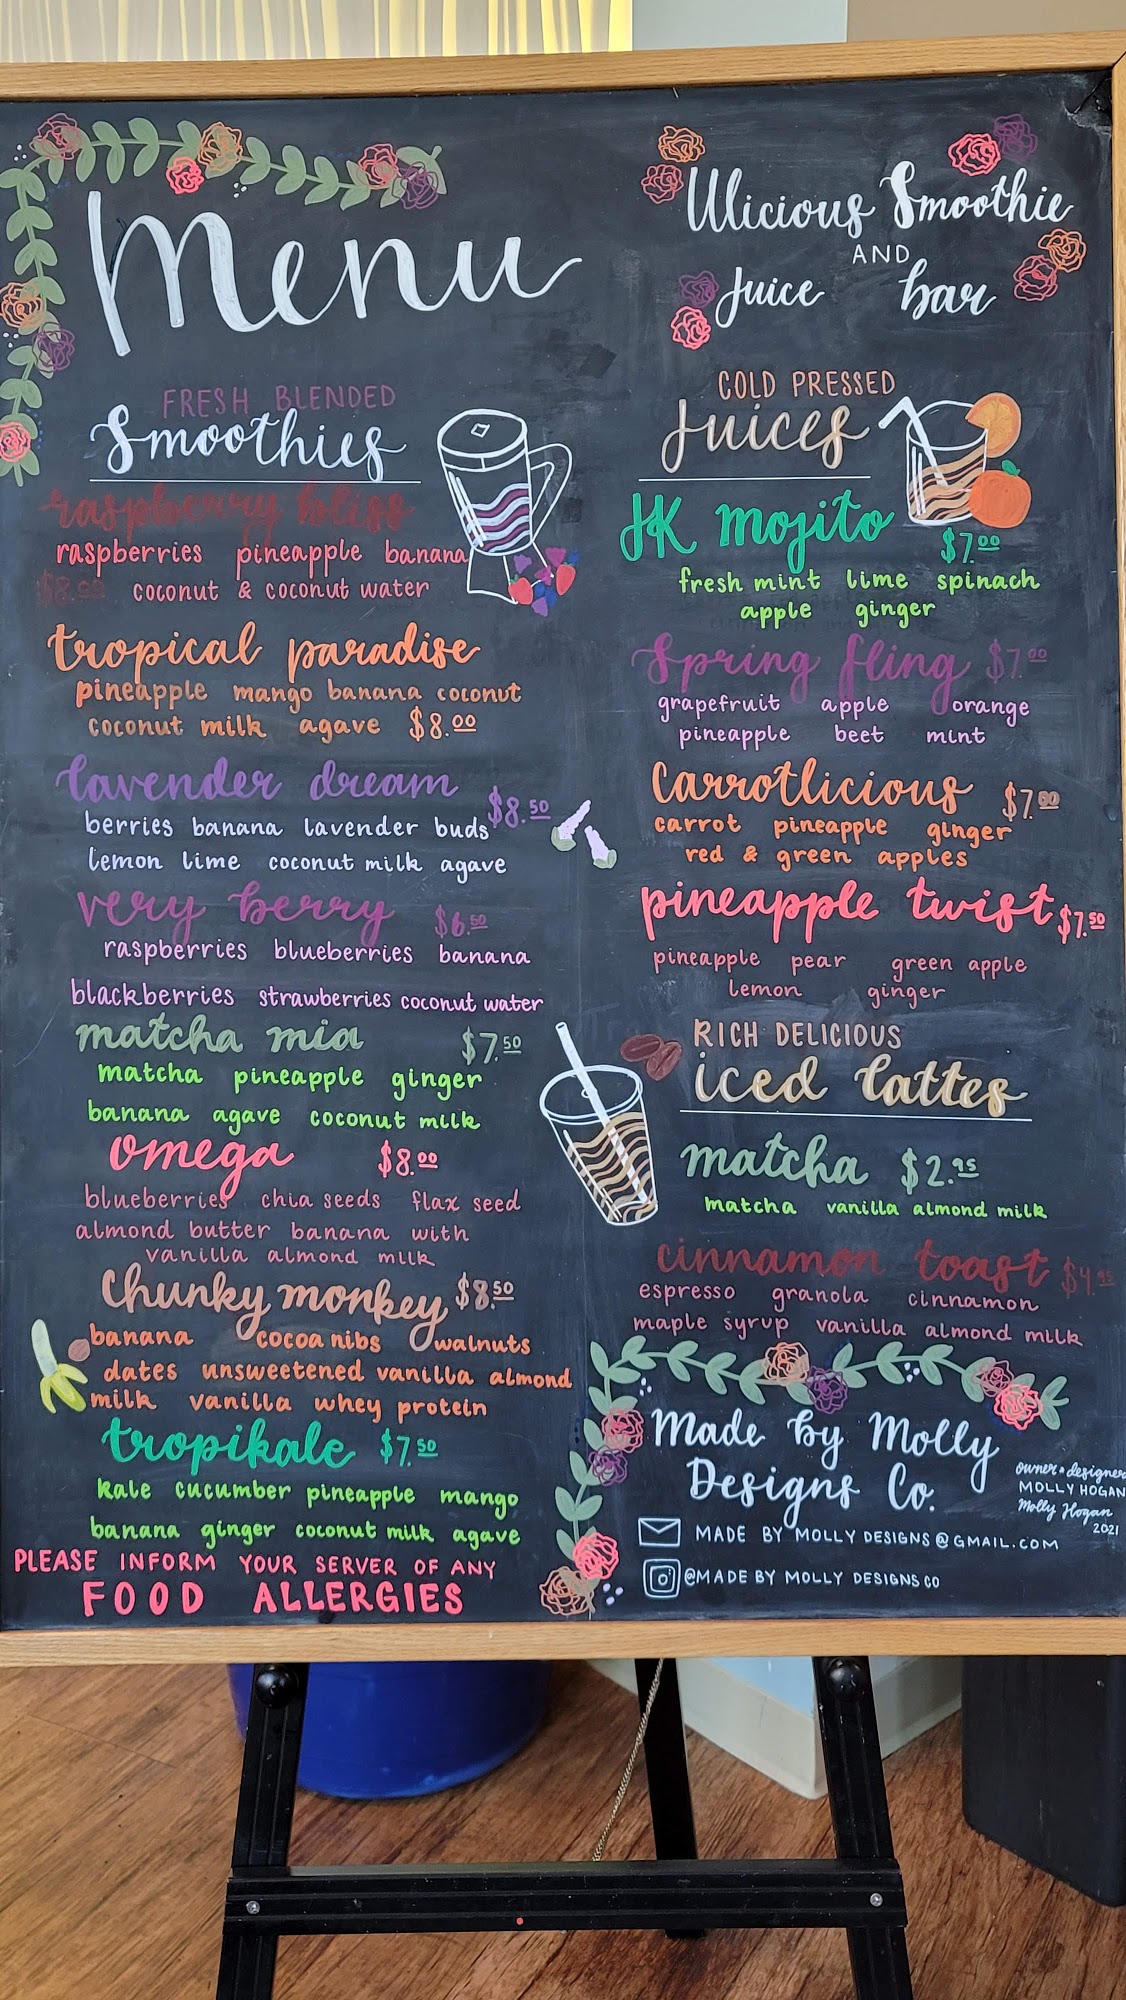 Menu
Ulicious Smoothie
AND
Juice bar
FRESH BLENDED
Smoothies
raspberry bliss
raspberries pineapple banana
$8.00 coconut & coconut water
tropical paradise
pineapple mango banana coconut
coconut milk agave $8.00
lavender dream $8.50
berries banana lavender buds
lemon lime coconut milk agave
very berry $6.50
raspberries blueberries banana
blackberries strawberries coconut water
matcha mia $7.50
matcha pineapple ginger
banana agave coconut milk
omega $8.00
blueberries chia seeds flax seed
almond butter banana with
vanilla almond milk
Chunky monkey $8.50
banana cocoa nibs walnuts
dates unsweetened vanilla almond
milk vanilla whey protein
tropikale $7.50
kale cucumber pineapple mango
banana ginger coconut milk agave
PLEASE INFORM YOUR SERVER OF ANY
FOOD ALLERGIES
COLD PRESSED
Juices
JK mojito $7.00
fresh mint lime spinach
apple ginger
Spring fling $7.00
grapefruit apple orange
pineapple beet mint
Carrotlicious $7.00
carrot pineapple ginger
red & green apples
pineapple twist $7.50
pineapple pear green apple
lemon ginger
RICH DELICIOUS
iced lattes
matcha $2.95
matcha vanilla almond milk
cinnamon toast $4.95
espresso granola cinnamon
maple syrup vanilla almond milk
Made by Molly
Designs Co.
owner & designer
MOLLY HOGAN
Molly Hogan
2021
MADE BY MOLLY DESIGNS @ GMAIL.COM
@MADE BY MOLLY DESIGNS CO